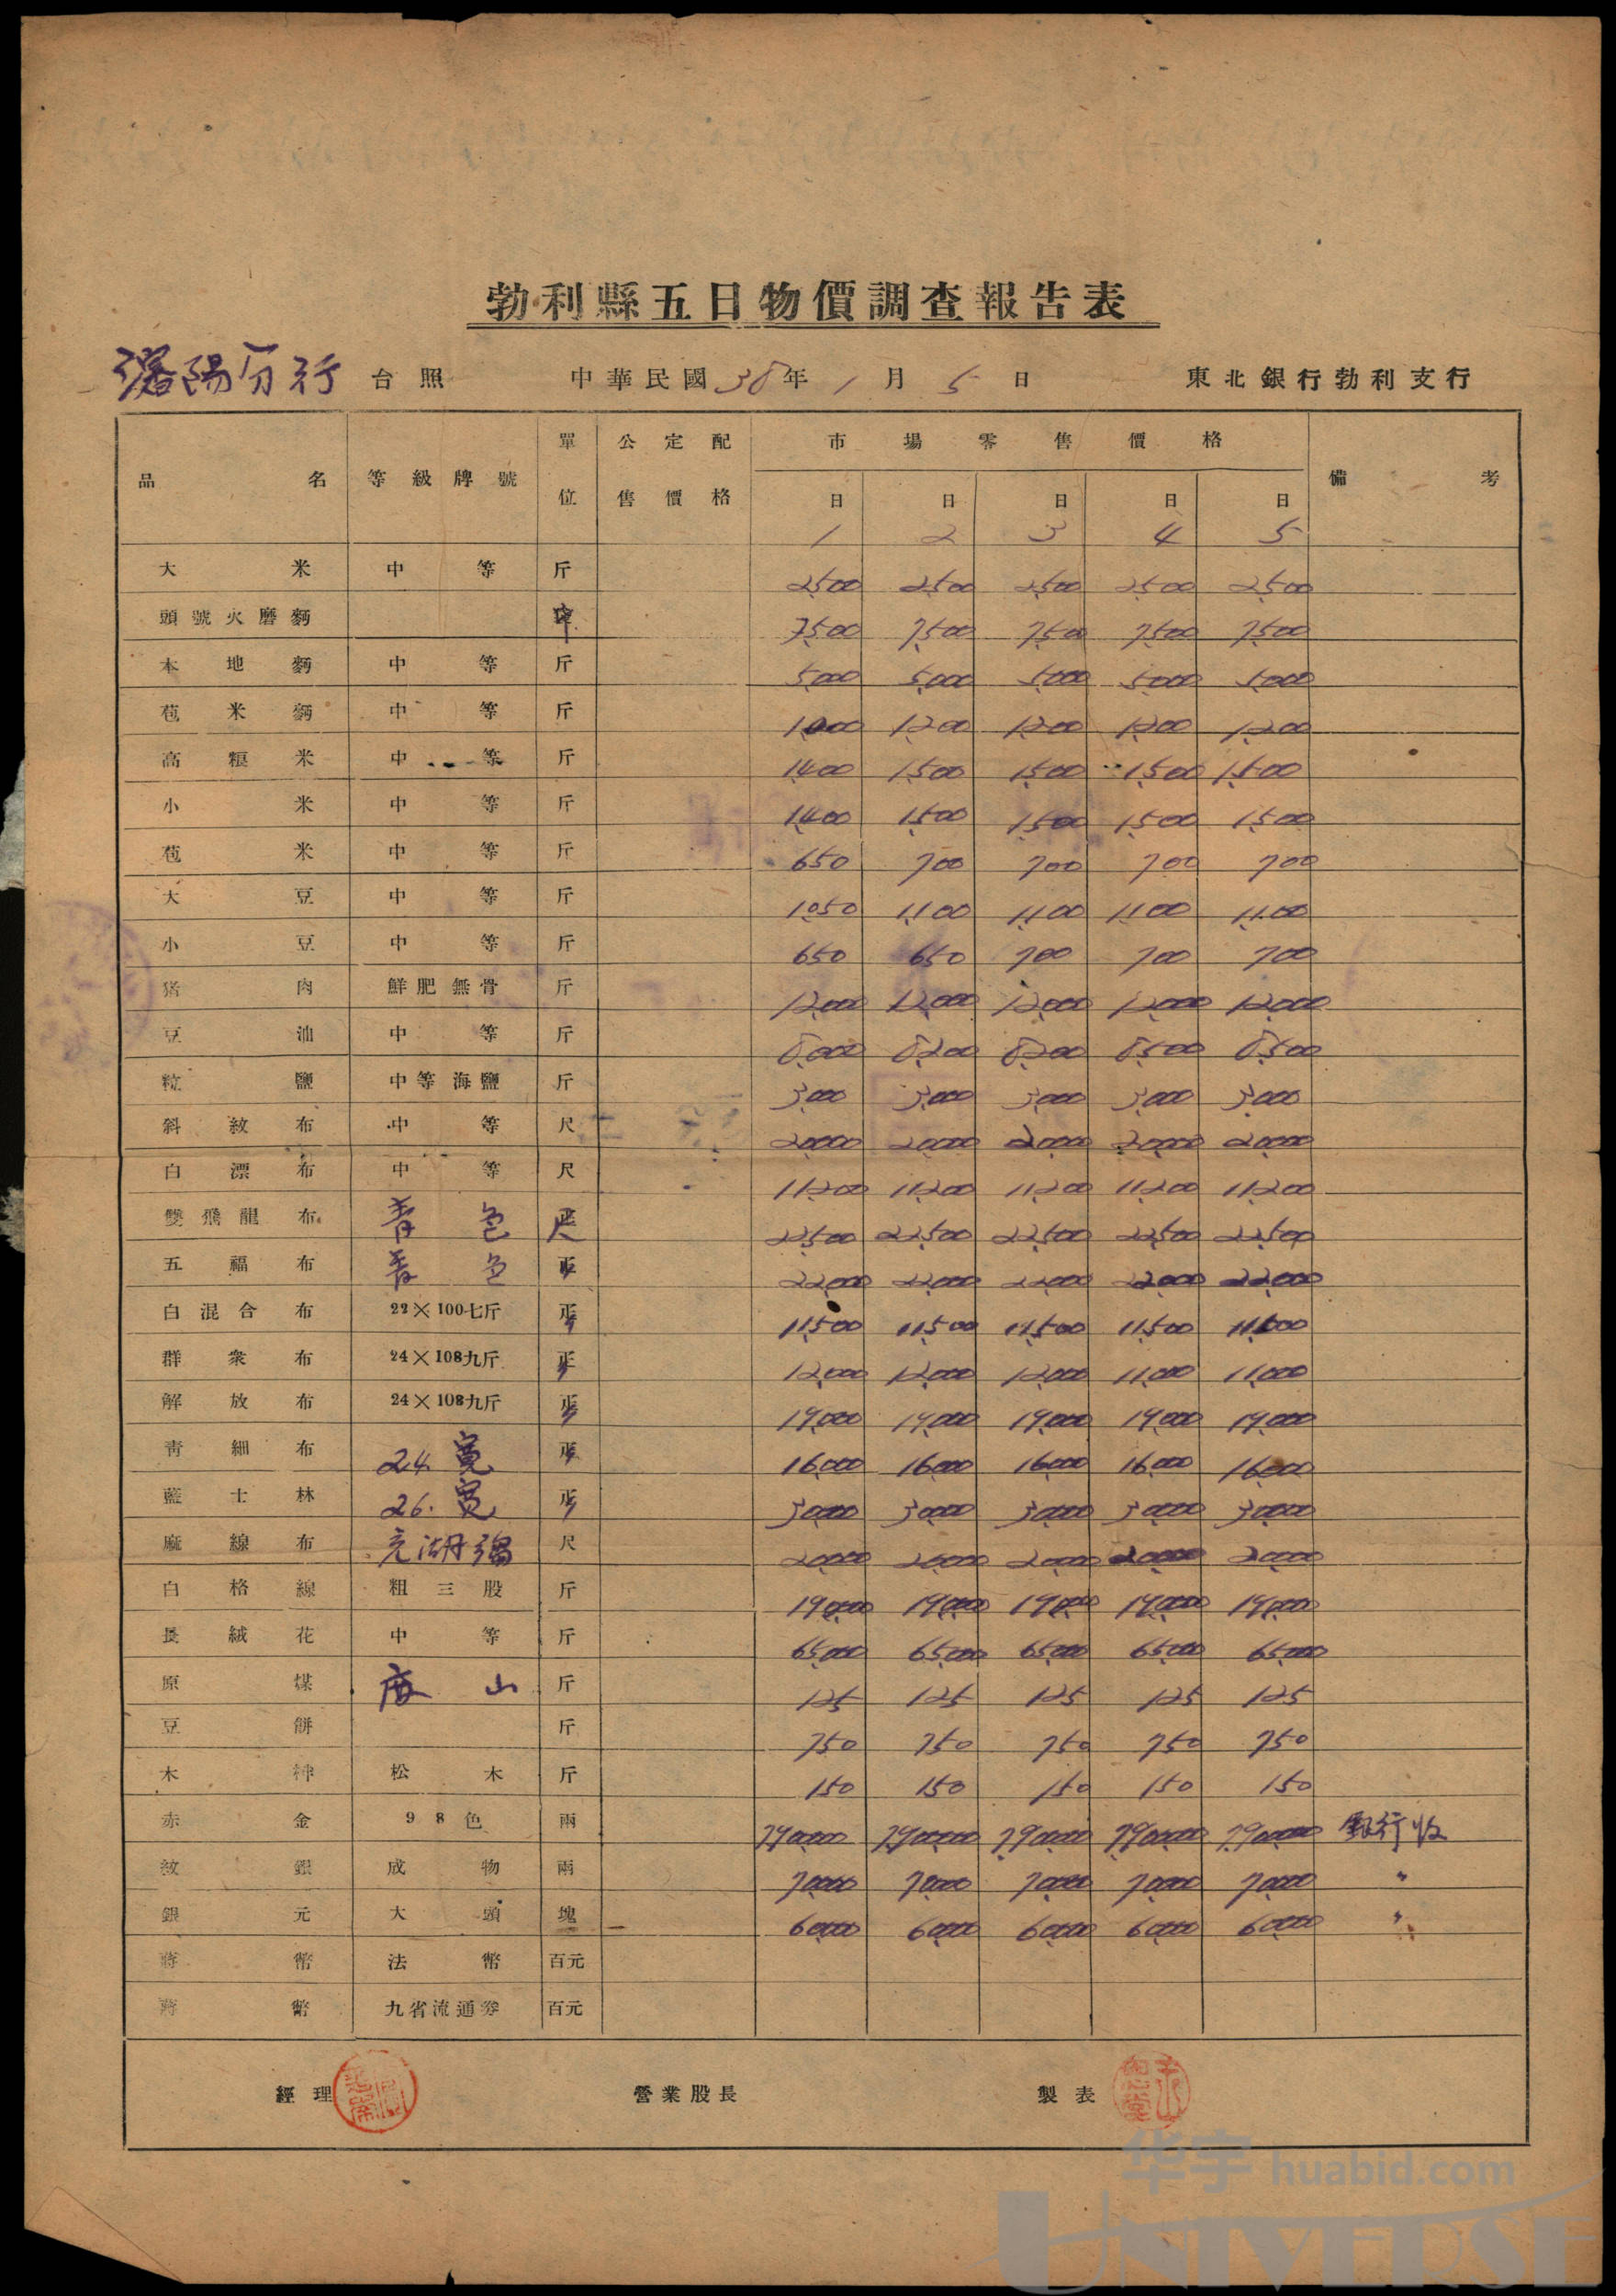 勃利縣五日物價調查報告表
瀋陽分行 台照 中華民國38年1月5日 東北銀行勃利支行
品名 等級牌號 單位 公定配售價格 市場零售價格 備考
日 日 日 日 日
1 2 3 4 5
大米 中等 斤 2,500 2,500 2,500 2,500 2,500
頭號火磨麪 7,500 7,500 7,500 7,500 7,500
本地麪 中等 斤 5,000 5,000 5,000 5,000 5,000
苞米麪 中等 斤 1,000 1,200 1,200 1,200 1,200
高粮米 中等 斤 1,400 1,500 1,500 1,500 1,500
小米 中等 斤 1,400 1,500 1,500 1,500 1,500
苞米 中等 斤 650 700 700 700 700
大豆 中等 斤 1,050 1,100 1,100 1,100 1,100
小豆 中等 斤 650 650 700 700 700
猪肉 鮮肥無骨 斤 12,000 12,000 12,000 12,000 12,000
豆油 中等 斤 8,000 8,200 8,200 8,500 8,500
粒鹽 中等海鹽 斤 3,000 3,000 3,000 3,000 3,000
斜紋布 中等 尺 20,000 20,000 20,000 20,000 20,000
白漂布 中等 尺 11,200 11,200 11,200 11,200 11,200
雙飛龍布 青色 尺 22,500 22,500 22,500 22,500 22,500
五福布 青色 22,000 22,000 22,000 22,000 22,000
白混合布 22×100七斤 11,500 11,500 11,500 11,500 11,500
群衆布 24×108九斤 12,000 12,000 12,000 11,000 11,000
解放布 24×108九斤 19,000 19,000 19,000 19,000 19,000
青細布 24.寬 16,000 16,000 16,000 16,000 16,000
藍士林 26.寬 30,000 30,000 30,000 30,000 30,000
麻線布 尺 20,000 20,000 20,000 20,000 20,000
白格線 粗三股 斤 190,000 190,000 190,000 190,000 190,000
長絨花 中等 斤 65,000 65,000 65,000 65,000 65,000
原煤 山 斤 125 125 125 125 125
豆餅 斤 750 750 750 750 750
木柈 松木 斤 150 150 150 150 150
赤金 98色 兩 790,000 790,000 790,000 790,000 790,000 銀行收
紋銀 成物 兩 70,000 70,000 70,000 70,000 70,000 〃
銀元 大頭 塊 60,000 60,000 60,000 60,000 60,000 〃
蔣幣 法幣 百元
蔣幣 九省流通券 百元
經理 營業股長 製表
华宇 huabid.com
UNIVERSE